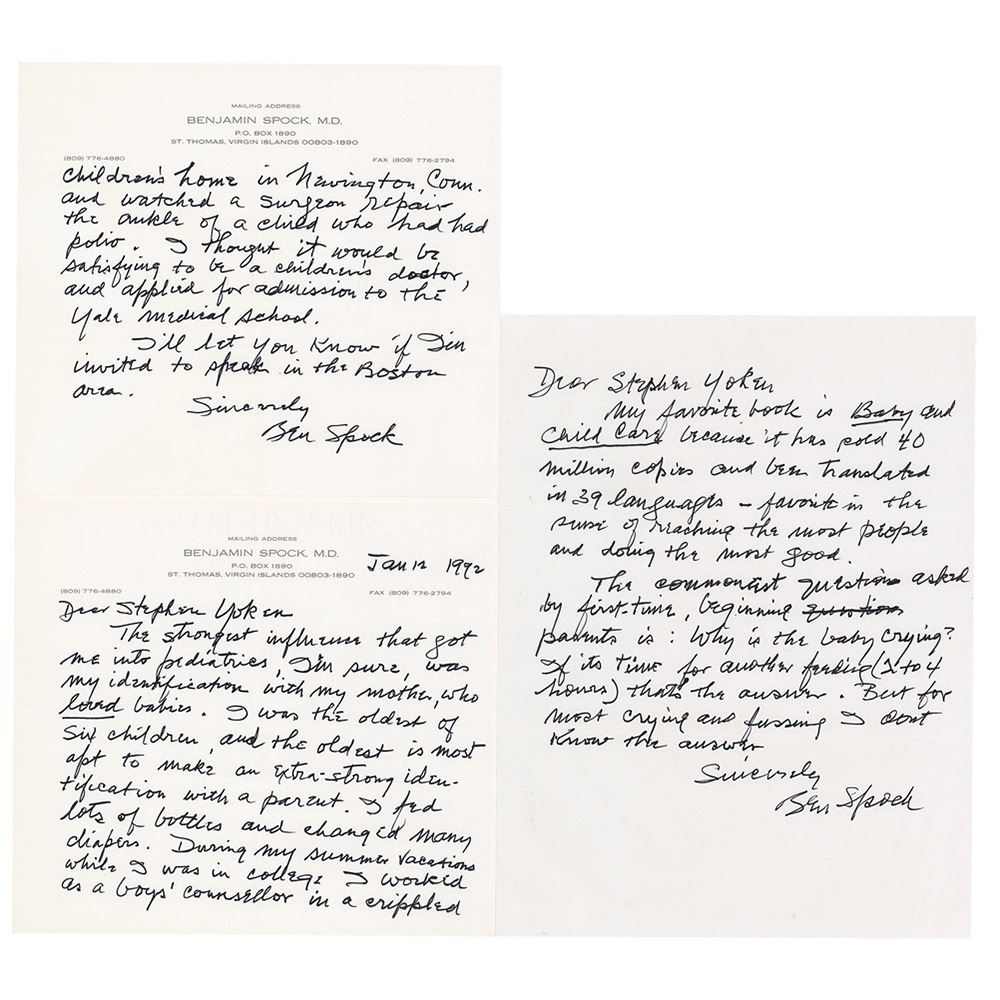 MAILING ADDRESS
BENJAMIN SPOCK, M.D.
P.O. BOX 1890
ST. THOMAS, VIRGIN ISLANDS 00803-1890
(809) 776-4880 FAX (809) 776-2794
children's home in Newington, Conn.
and watched a surgeon repair
the ankle of a child who had had
polio. I thought it would be
satisfying to be a children's doctor,
and applied for admission to the
Yale medical school.
I'll let you know if I'm
invited to speak in the Boston
area.
Sincerely
Ben Spock
MAILING ADDRESS
BENJAMIN SPOCK, M.D.
P.O. BOX 1890
ST. THOMAS, VIRGIN ISLANDS 00803-1890
Jan 12 1992
(809) 776-4880 FAX (809) 776-2794
Dear Stephen Yoken
The strongest influence that got
me into pediatrics, I'm sure, was
my identification with my mother, who
loved babies. I was the oldest of
six children, and the oldest is most
apt to make an extra-strong iden-
tification with a parent. I fed
lots of bottles and changed many
diapers. During my summer vacations
while I was in college I worked
as a boys' counsellor in a crippled
Dear Stephen Yoken
My favorite book is Baby and
Child Care because it has sold 40
million copies and been translated
in 39 languages - favorite in the
sense of reaching the most people
and doing the most good.
The commonest question asked
by first-time, beginning questions
parents is: Why is the baby crying?
If its time for another feeding (2 to 4
hours) that's the answer. But for
most crying and fussing I don't
know the answer
Sincerely
Ben Spock